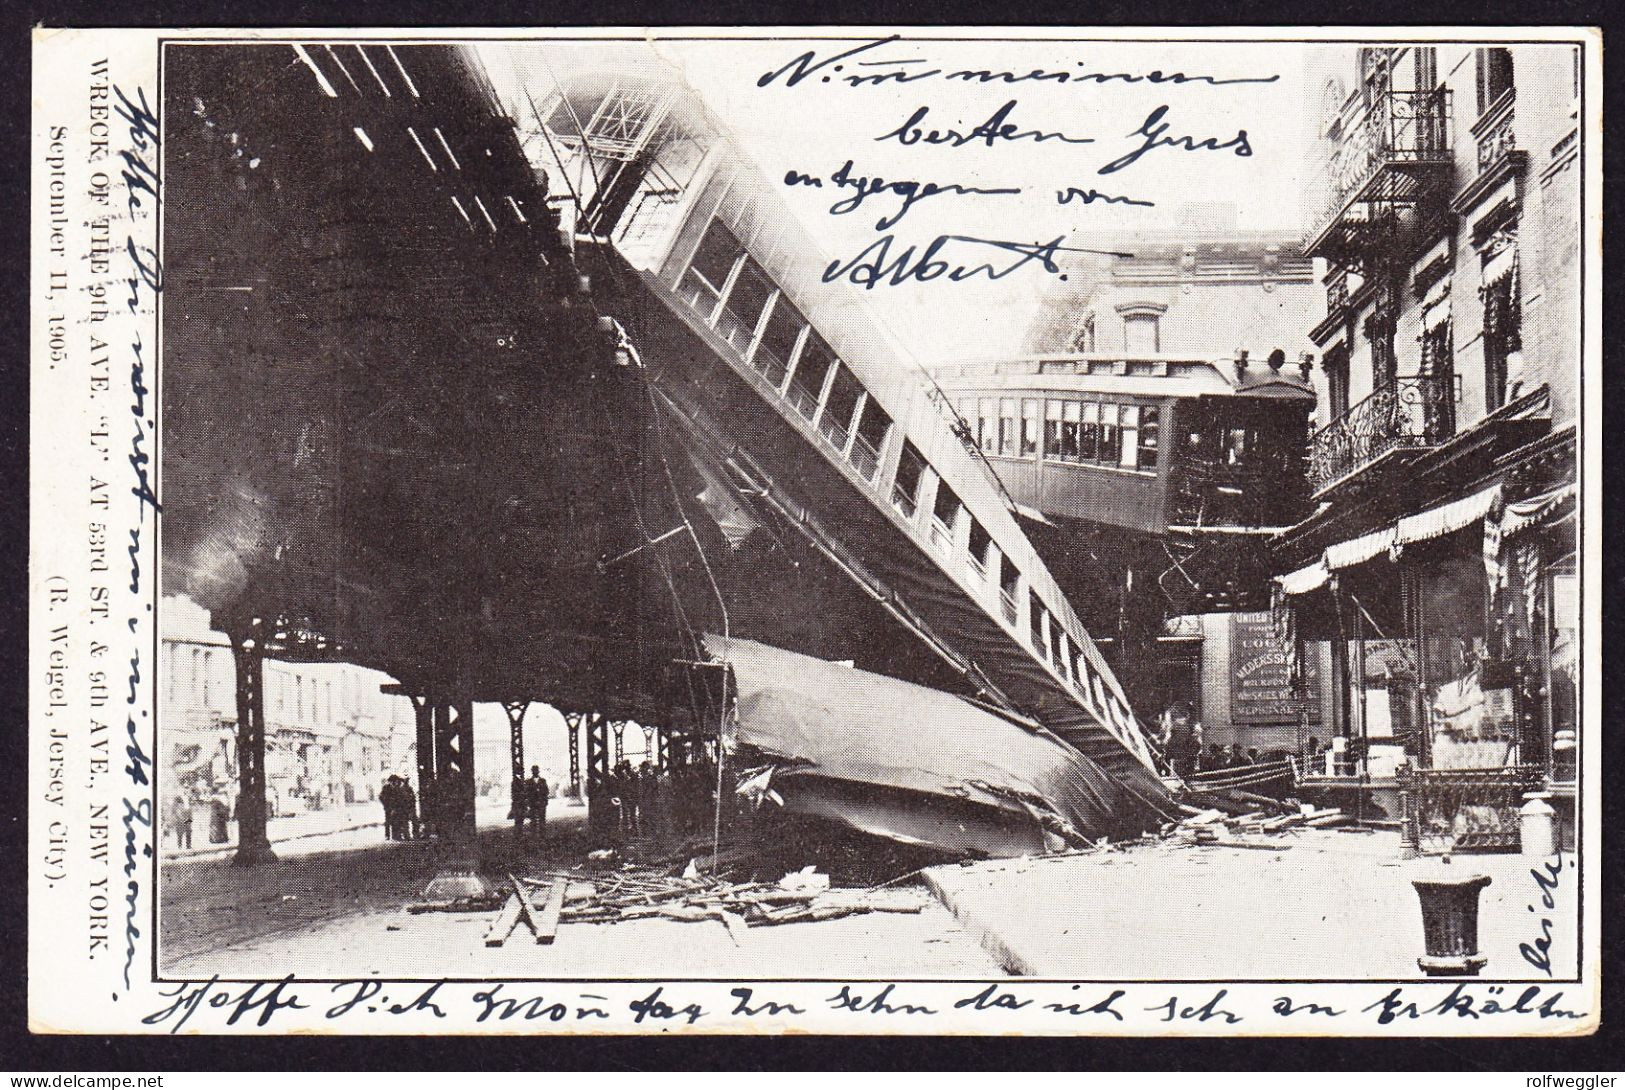 Nim̄ meinen
besten Grus
entgegen von
Albert.
WRECK OF THE 9th AVE. "L" AT 53rd ST. & 9th AVE., NEW YORK.
September 11, 1905.
(R. Weigel, Jersey City).
Hoffe Du wirst mir nicht Zürnen.
Hoffe Dich Mon̄tag Zu sehn da ich sehr an Erkältn
leide.
UNITED
rolfweggler